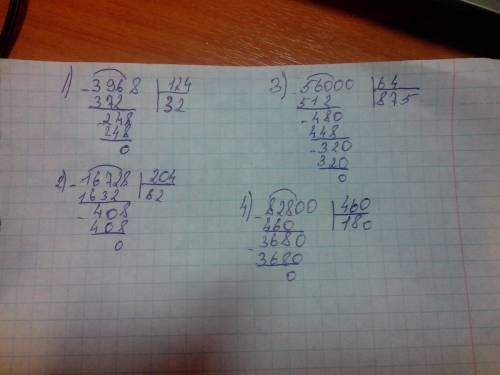 1) -3968 | 124
372 | 32
-248
248
0
2) -16728 | 204
1632 | 82
-408
408
0
3) -56000 | 64
512 | 875
-480
448
-320
320
0
4) -82800 | 460
460 | 180
-3680
3680
0